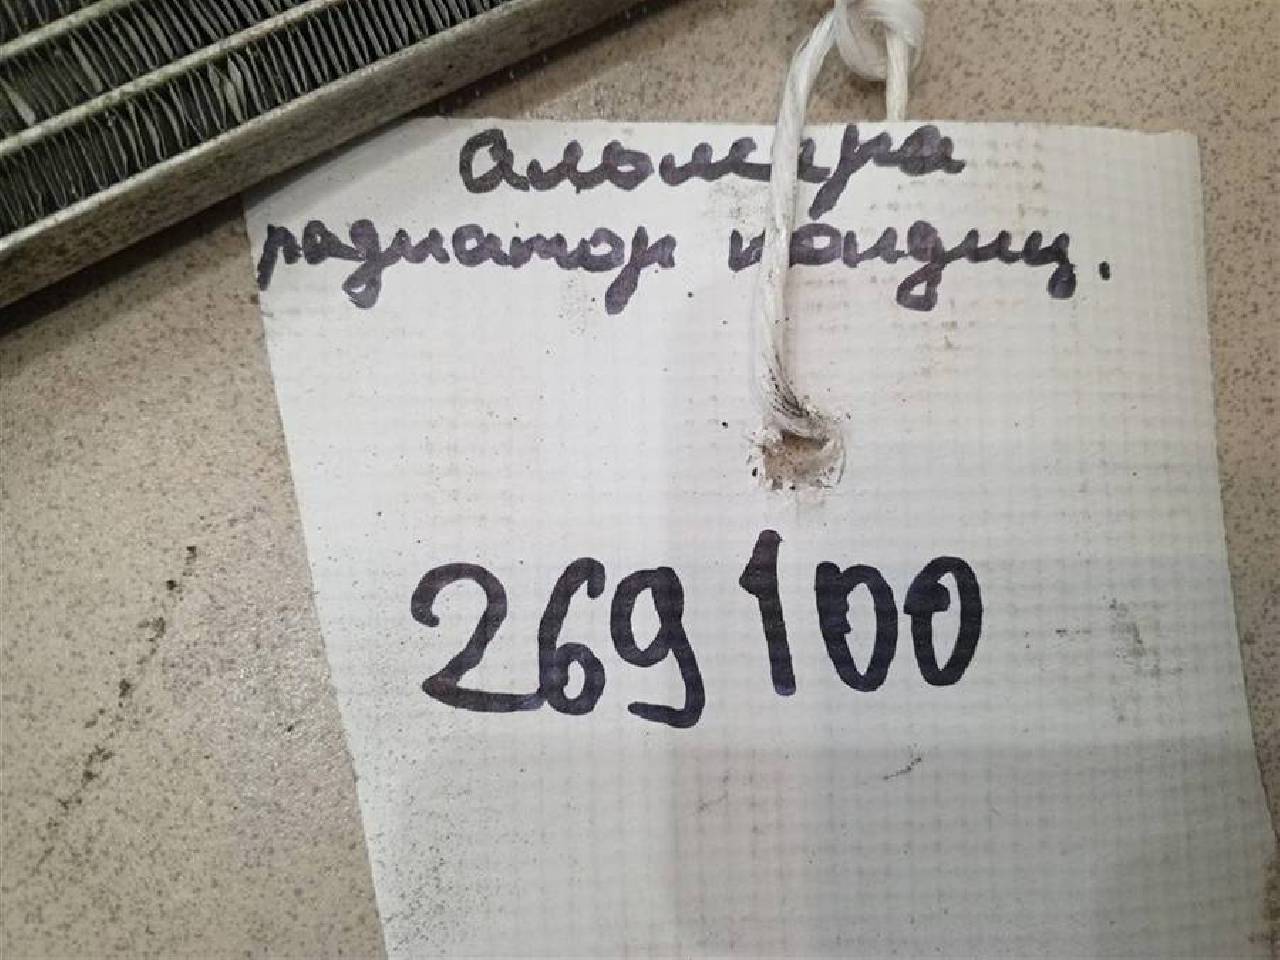 Альмера
радиатор кондиц.
269100